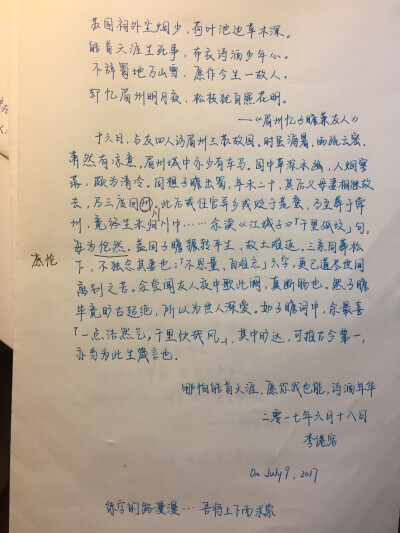 苏园祠外尘烟少，荷叶池边草木深。
皓首天涯生死事，布衣诗酒少年心。
不辞蜀地万山雪，愿作今生一故人。
却忆眉州明月夜，松枝犹自照花明。
——《眉州忆子瞻兼友人》
十六日，与友四人访眉州三苏故园。时至消暑，雨疏云密，
萧然有凉意。眉州城中亦少有车马。园中草深水幽，人烟寥
落，颇为清冷。因想子瞻出蜀，年未二十，其后父母妻相继故
去，乃三度回州。此后或任官异乡或贬于荒蛮，乃至葬于常
州，竟终生未归川中……余读《江城子》「千里孤坟」句，
每为怆然。盖因子瞻辗转半生，故土难返。三苏同葬松
下，不独念其妻也；「不思量，自难忘」六字，更已道尽世间
离别之苦。余尝闻友人夜中歌此阕，真断肠也。然子瞻
毕竟旷古超绝，所以为世人深爱。如子瞻词中，余最喜
「一点浩然气，千里快哉风」，其中旷达，可推古今第一，
亦当为此生箴言也。
川
怆
哪怕皓首天涯，愿你我也能，诗酒年华
二零一七年六月十八日
On July 9, 2017
练字的路漫漫…吾将上下而求索